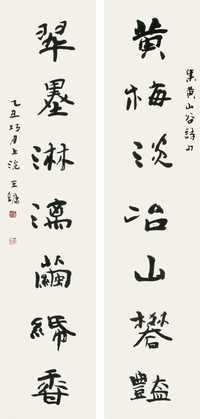 集黄山谷詩句
黄梅淡冶山礬豔
翠墨淋漓繭香
乙丑巧月上浣王鏞